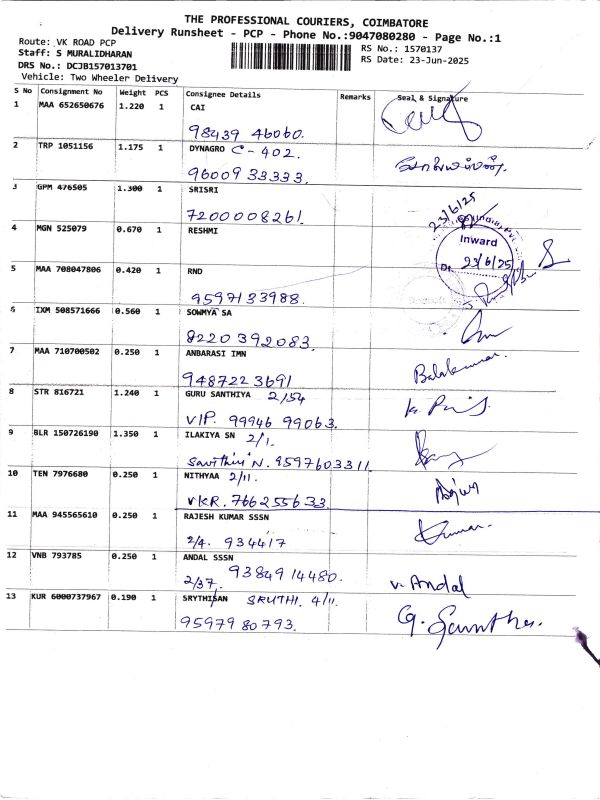 THE PROFESSIONAL COURIERS, COIMBATORE
Delivery Runsheet - PCP - Phone No.:9047080280 - Page No.:1
Route: VK ROAD PCP
Staff: S MURALIDHARAN
DRS No.: DCJB157013701
Vehicle: Two Wheeler Delivery
RS No.: 1570137
RS Date: 23-Jun-2025
S No Consignment No Weight PCS Consignee Details Remarks Seal & Signature
1 MAA 652650676 1.220 1 CAI
98439 46060.
2 TRP 1051156 1.175 1 DYNAGRO C-402.
96009 33333.
3 GPM 476505 1.300 1 SRISRI
7200008261.
23/6/25
4 MGN 525079 0.670 1 RESHMI
Inward
23/6/25
5 MAA 708047806 0.420 1 RND
9597133988.
6 IXM 508571666 0.560 1 SOWMYA SA
8220392083.
7 MAA 710700502 0.250 1 ANBARASI IMN
9487223691
Balakumar.
8 STR 816721 1.240 1 GURU SANTHIYA 2/54
VIP. 99946 99063.
9 BLR 150726190 1.350 1 ILAKIYA SN 2/1.
Savithiri N. 9597603311
10 TEN 7976680 0.250 1 NITHYAA 2/11.
VKR. 766255633.
11 MAA 945565610 0.250 1 RAJESH KUMAR SSSN
2/4. 934417
Kumar.
12 VNB 793785 0.250 1 ANDAL SSSN
2/37. 9384914480.
V. Andal
13 KUR 6000737967 0.190 1 SRYTHISAN SRUTHI. 4/11.
9597980793.